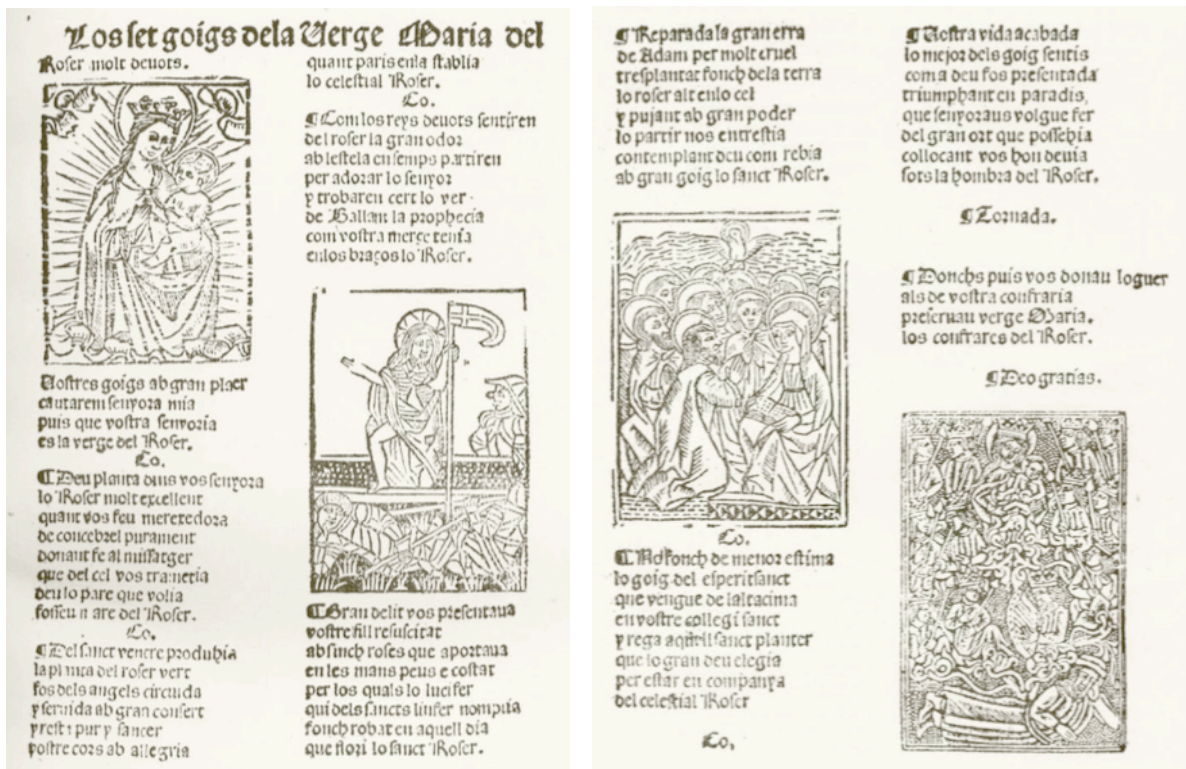 Los set goigs dela Verge Maria del
Roser molt devots.
Vostres goigs ab gran plaer
cantarem senyora mia
puis que vostra senyoria
es la verge del Roser.
Co.
¶ Deu planta dins vos senyora
lo Roser molt excellent
quant vos feu meretedora
de concebrel purament
donant fe al missatger
que del cel vos trametia
deu lo pare que volia
fosseu mare del Roser.
Co.
¶ Del sanct ventre produhia
la planta del roser vert
fos dels angels circuida
y servida ab gran consert
y resta pur y sancer
vostre cors ab allegria
quant paris enla stablia
lo celestial Roser.
Co.
¶ Com los reys devots sentiren
del roser la gran odor
ab lestela ensemps partiren
per adorar lo senyor
y trobaren cert lo ver
de Ballan la prophecia
com vostra merce tenia
enlos braços lo Roser.
¶ Gran delit vos presentava
vostre fill resuscitat
ab sinch roses que aportava
en les mans peus e costat
per los quals lo lucifer
qui dels sancts linfer
fonch robat en aquell dia
que flori lo sanct Roser.
¶ Reparada la gran erra
de Adam per molt cruel
tresplantat fonch dela terra
lo roser alt enlo cel
y pujant ab gran poder
lo partir nos entrestia
contemplant deu com rebia
ab gran goig lo sanct Roser.
Co.
¶ No fonch de menor estima
lo goig del esperit sanct
que vengue de laltacima
en vostre collegi sanct
y rega aquell sanct planter
que lo gran deu elegia
per estar en companya
del celestial Roser
Co.
¶ Vostra vida acabada
lo mejor dels goig sentis
com a deu fos presentada
triumphant en paradis,
que senyor aus volgue fer
del gran ort que possehia
collocant vos hon devia
sots la hombra del Roser.
¶ Tornada.
¶ Donchs puis vos donau loguer
als de vostra confraria
preservau verge Maria.
los confrares del Roser.
¶ Deo gratias.